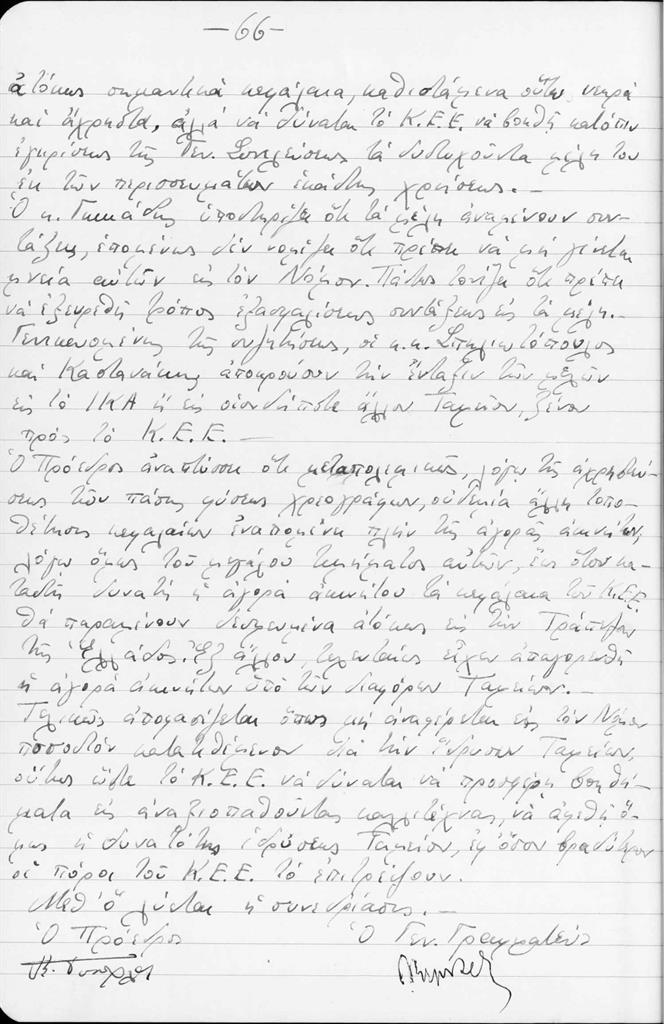 -66-
ἀτόκως σημαντικὰ κεφάλαια, καθιστάμενα οὕτω νεκρὰ
καὶ ἄχρηστα, ἀλλὰ νὰ δύναται τὸ Κ.Ε.Ε. νὰ βοηθῇ κατόπιν
ἐγκρίσεως τῆς Γεν. Συνελεύσεως τὰ δυστυχοῦντα μέλη του
ἐκ τῶν περισσευμάτων ἑκάστης χρήσεως.-
Ὁ κ. ὑποστηρίζει ὅτι τὰ μέλη ἀναμένουν συν-
τάξεις, ἑπομένως δὲν νομίζει ὅτι πρέπει νὰ μὴ γίνεται
μνεία αὐτῶν εἰς τὸν Νόμον. Πάντως τονίζει ὅτι πρέπει
νὰ ἐξευρεθῇ τρόπος ἐξασφαλίσεως συντάξεως εἰς τὰ μέλη.-
Γενικευομένης τῆς συζητήσεως, οἱ κ.κ. Σπηλιωτόπουλος
καὶ Καστανάκης ἀποκρούουν τὴν ἔνταξιν τῶν μελῶν
εἰς τὸ ΙΚΑ ἢ εἰς οἱονδήποτε ἄλλον Ταμεῖον, ξένον
πρὸς τὸ Κ.Ε.Ε.-
Ὁ Πρόεδρος ἀναπτύσσει ὅτι μεταπολεμικῶς, λόγῳ τῆς ἀχρηστεύ-
σεως τῶν πάσης φύσεως χρεογράφων, οὐδεμία ἄλλη τοπο-
θέτησις κεφαλαίων ἐναπομένει πλὴν τῆς ἀγορᾶς ἀκινήτων,
λόγῳ ὅμως τοῦ μεγάλου τιμήματος αὐτῶν, ἕως ὅτου κα-
ταστῇ δυνατὴ ἡ ἀγορὰ ἀκινήτου τὰ κεφάλαια τοῦ Κ.Ε.Ε.
θὰ παραμένουν δεσμευμένα ἀτόκως εἰς τὴν Τράπεζαν
τῆς Ἑλλάδος. Ἐξ ἄλλου, τελευταίως εἶχεν ἀπαγορευθῆ
ἡ ἀγορὰ ἀκινήτων ὑπὸ τῶν διαφόρων Ταμείων.-
Τελικῶς ἀποφασίζεται ὅπως μὴ ἀναφέρεται εἰς τὸν Νόμον
ποσοστὸν κατατιθέμενον διὰ τὴν ἵδρυσιν Ταμείων,
οὕτως ὥστε τὸ Κ.Ε.Ε. νὰ δύναται νὰ προσφέρῃ βοηθή-
ματα εἰς ἀναξιοπαθοῦντας καλλιτέχνας, νὰ ἀφεθῇ ὅ-
μως ἡ δυνατότης ἱδρύσεως Ταμείου, ἐφ' ὅσον βραδύτερον
οἱ πόροι τοῦ Κ.Ε.Ε. τὸ ἐπιτρέψουν.
Μεθ' ὃ λύεται ἡ συνεδρίασις.-
Ὁ Πρόεδρος Ὁ Γεν. Γραμματεύς